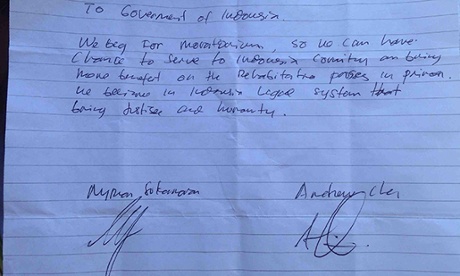 To Goverment of Indonesia.
We beg for moratorium, so we can have
Chance to serve to Indonesia Country and bring
more benefit on the Rehabilitation process in prison.
We believe in Indonesia Legal system that
bring Justice and humanity.
Myuran Sukumaran Andrew Chan